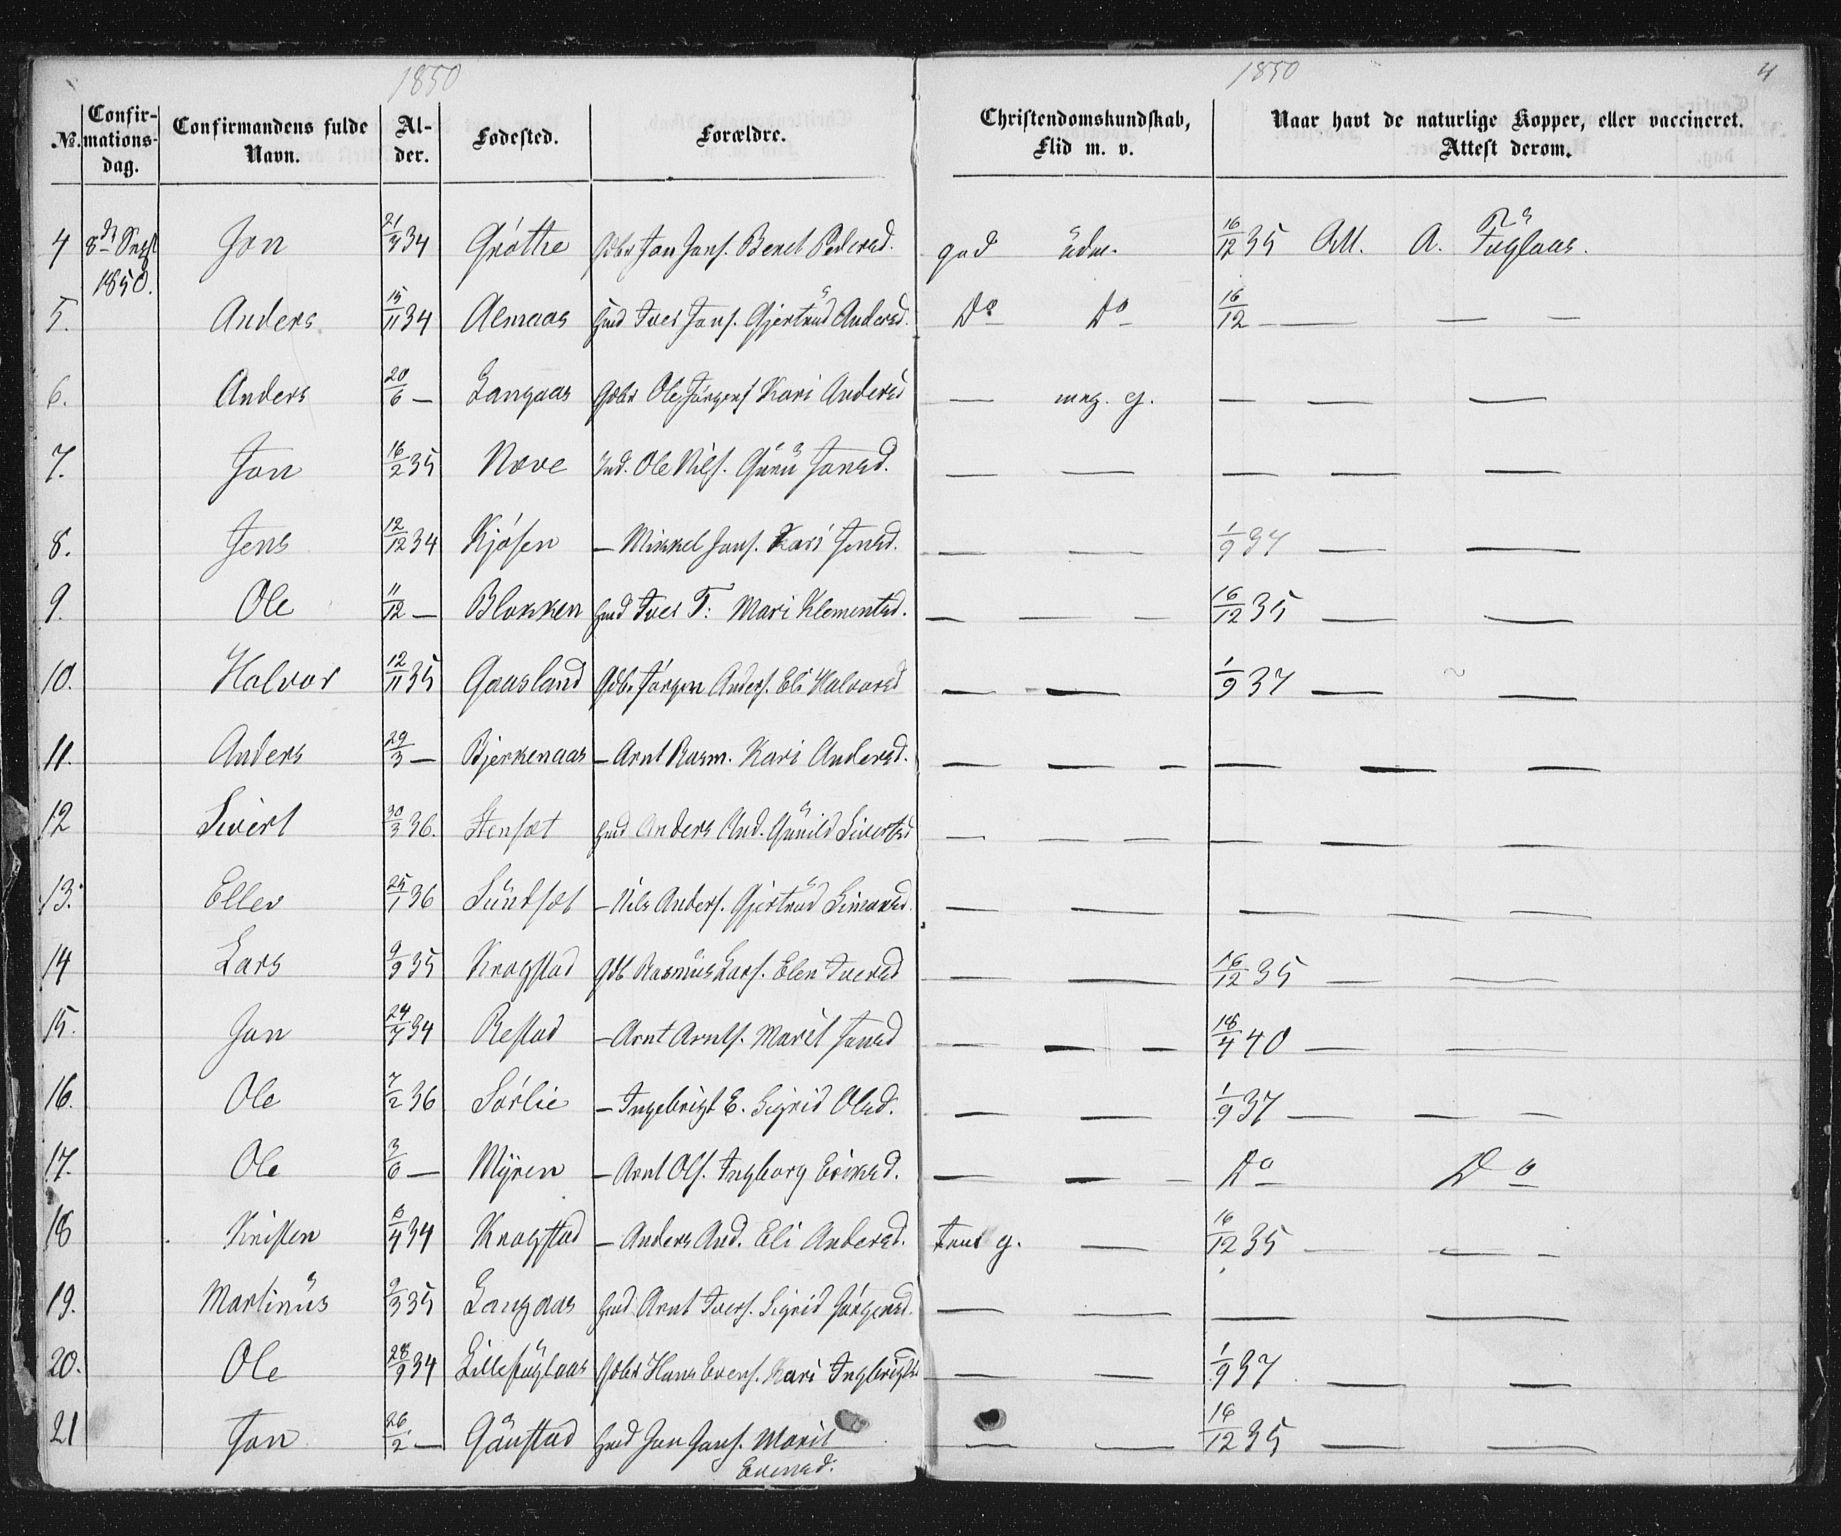 1850
1850
4
No.
Confir-mations-dag.
Confirmandens fulde Navn.
Al-der.
Fødested.
Forældre.
Christendomskundskab, Flid m. v.
Naar havt de naturlige Kopper, eller vaccineret. Attest derom.
4 8de 1850. Jon 21/3 34 Grøtte Gdbr Jon Jons. Beret Pedersd. god udm. 16/12 35 Att. A. Fuglaas.
5. Anders 15/11 34 Almaas Hmd Iver Jons. Gjertrud Andersd. Do Do 16/12 — — —
6. Anders 20/6 — Langaas Gdbr Ole Jørgens Kari Andersd — meg. g. — — —
7. Jon 16/2 35 Nove Ind. Ole Nils. Guru Jonsd. — — — — —
8. Jens 12/12 34 Kjøsen — Mikkel Jons. Kari Jensd. — — 1/9 37 — —
9. Ole 11/12 — Blokken Hmd Iver T: Mari Klementsd. — — — 16/12 35 — —
10. Halvor 12/11 35 Gaasland Gdbr Jørgen Anders. Eli Halvorsd — — 1/9 37 — —
11. Anders 29/3 — Bjerkenaas — Arnt Rasm. Kari Andersd. — — — — — —
12 Sivert 30/3 36. Stensæt Hmd Anders And. Gunild Sivertsd — — — — — —
13. Ellev 25/1 36 Sundsæt — Nils Anders. Gjertrud Simonsd. — — — — —
14 Lars 9/9 35 Krogstad Gdb Rasmus Lars. Elen Iversd — — 16/12 35 — —
15. Jon 24/7 34 Restad — Arnt Arnts. Marit Jonsd — — — 18/4 40 — —
16. Ole 7/2 36 Sørlie — Ingebrigt E. Sigrid Olsd. — — 1/9 37 — — —
17. Ole 3/6 — Myren — Arnt Ols. Ingborg Eriksd. — — — Do Do
18 Kristen 6/4 34 Krogstad — Anders And. Eli Andersd. g. — 16/12 35 — — —
19. Martinus 9/3 35 Langaas Hmd Arnt Ivers. Sigrid Jørgensd. — — — —
20. Ole 28/9 34 Lillefuglaas Gdbr Hans Evens. Kari Ingbrigtsd — — 1/9 37 — —
21 Jon 26/2 — Gaustad Hmd Jon Jons. Marit Evensd. — — 16/12 35 — —